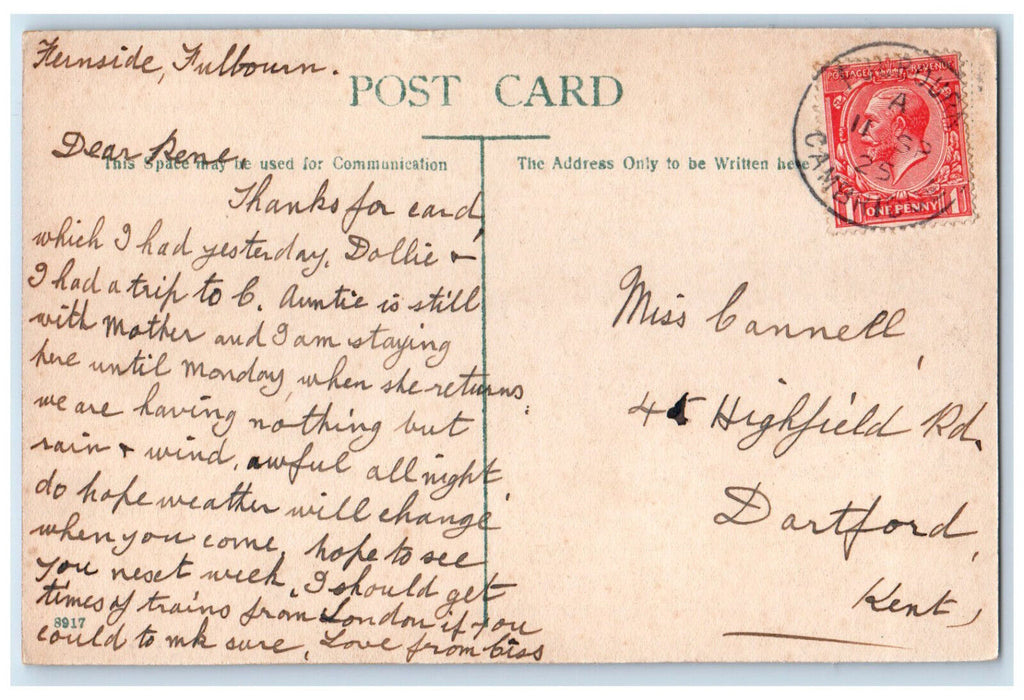 Fernside, Fulbourn.
POST CARD
Dear Rene,
This Space may be used for Communication
The Address Only to be Written here
Thanks for card,
which I had yesterday, Dollie &
I had a trip to C. Auntie is still
with Mother and I am staying
here until Monday, when she returns
we are having nothing but
rain & wind, awful all night,
do hope weather will change
when you come, hope to see
you next week, I should get
times of trains from London if you
could to mk sure, Love from Ciss
8917
POSTAGE REVENUE
ONE PENNY
A
11 SP
25
Miss Cannell,
45 Highfield Rd,
Dartford,
Kent,